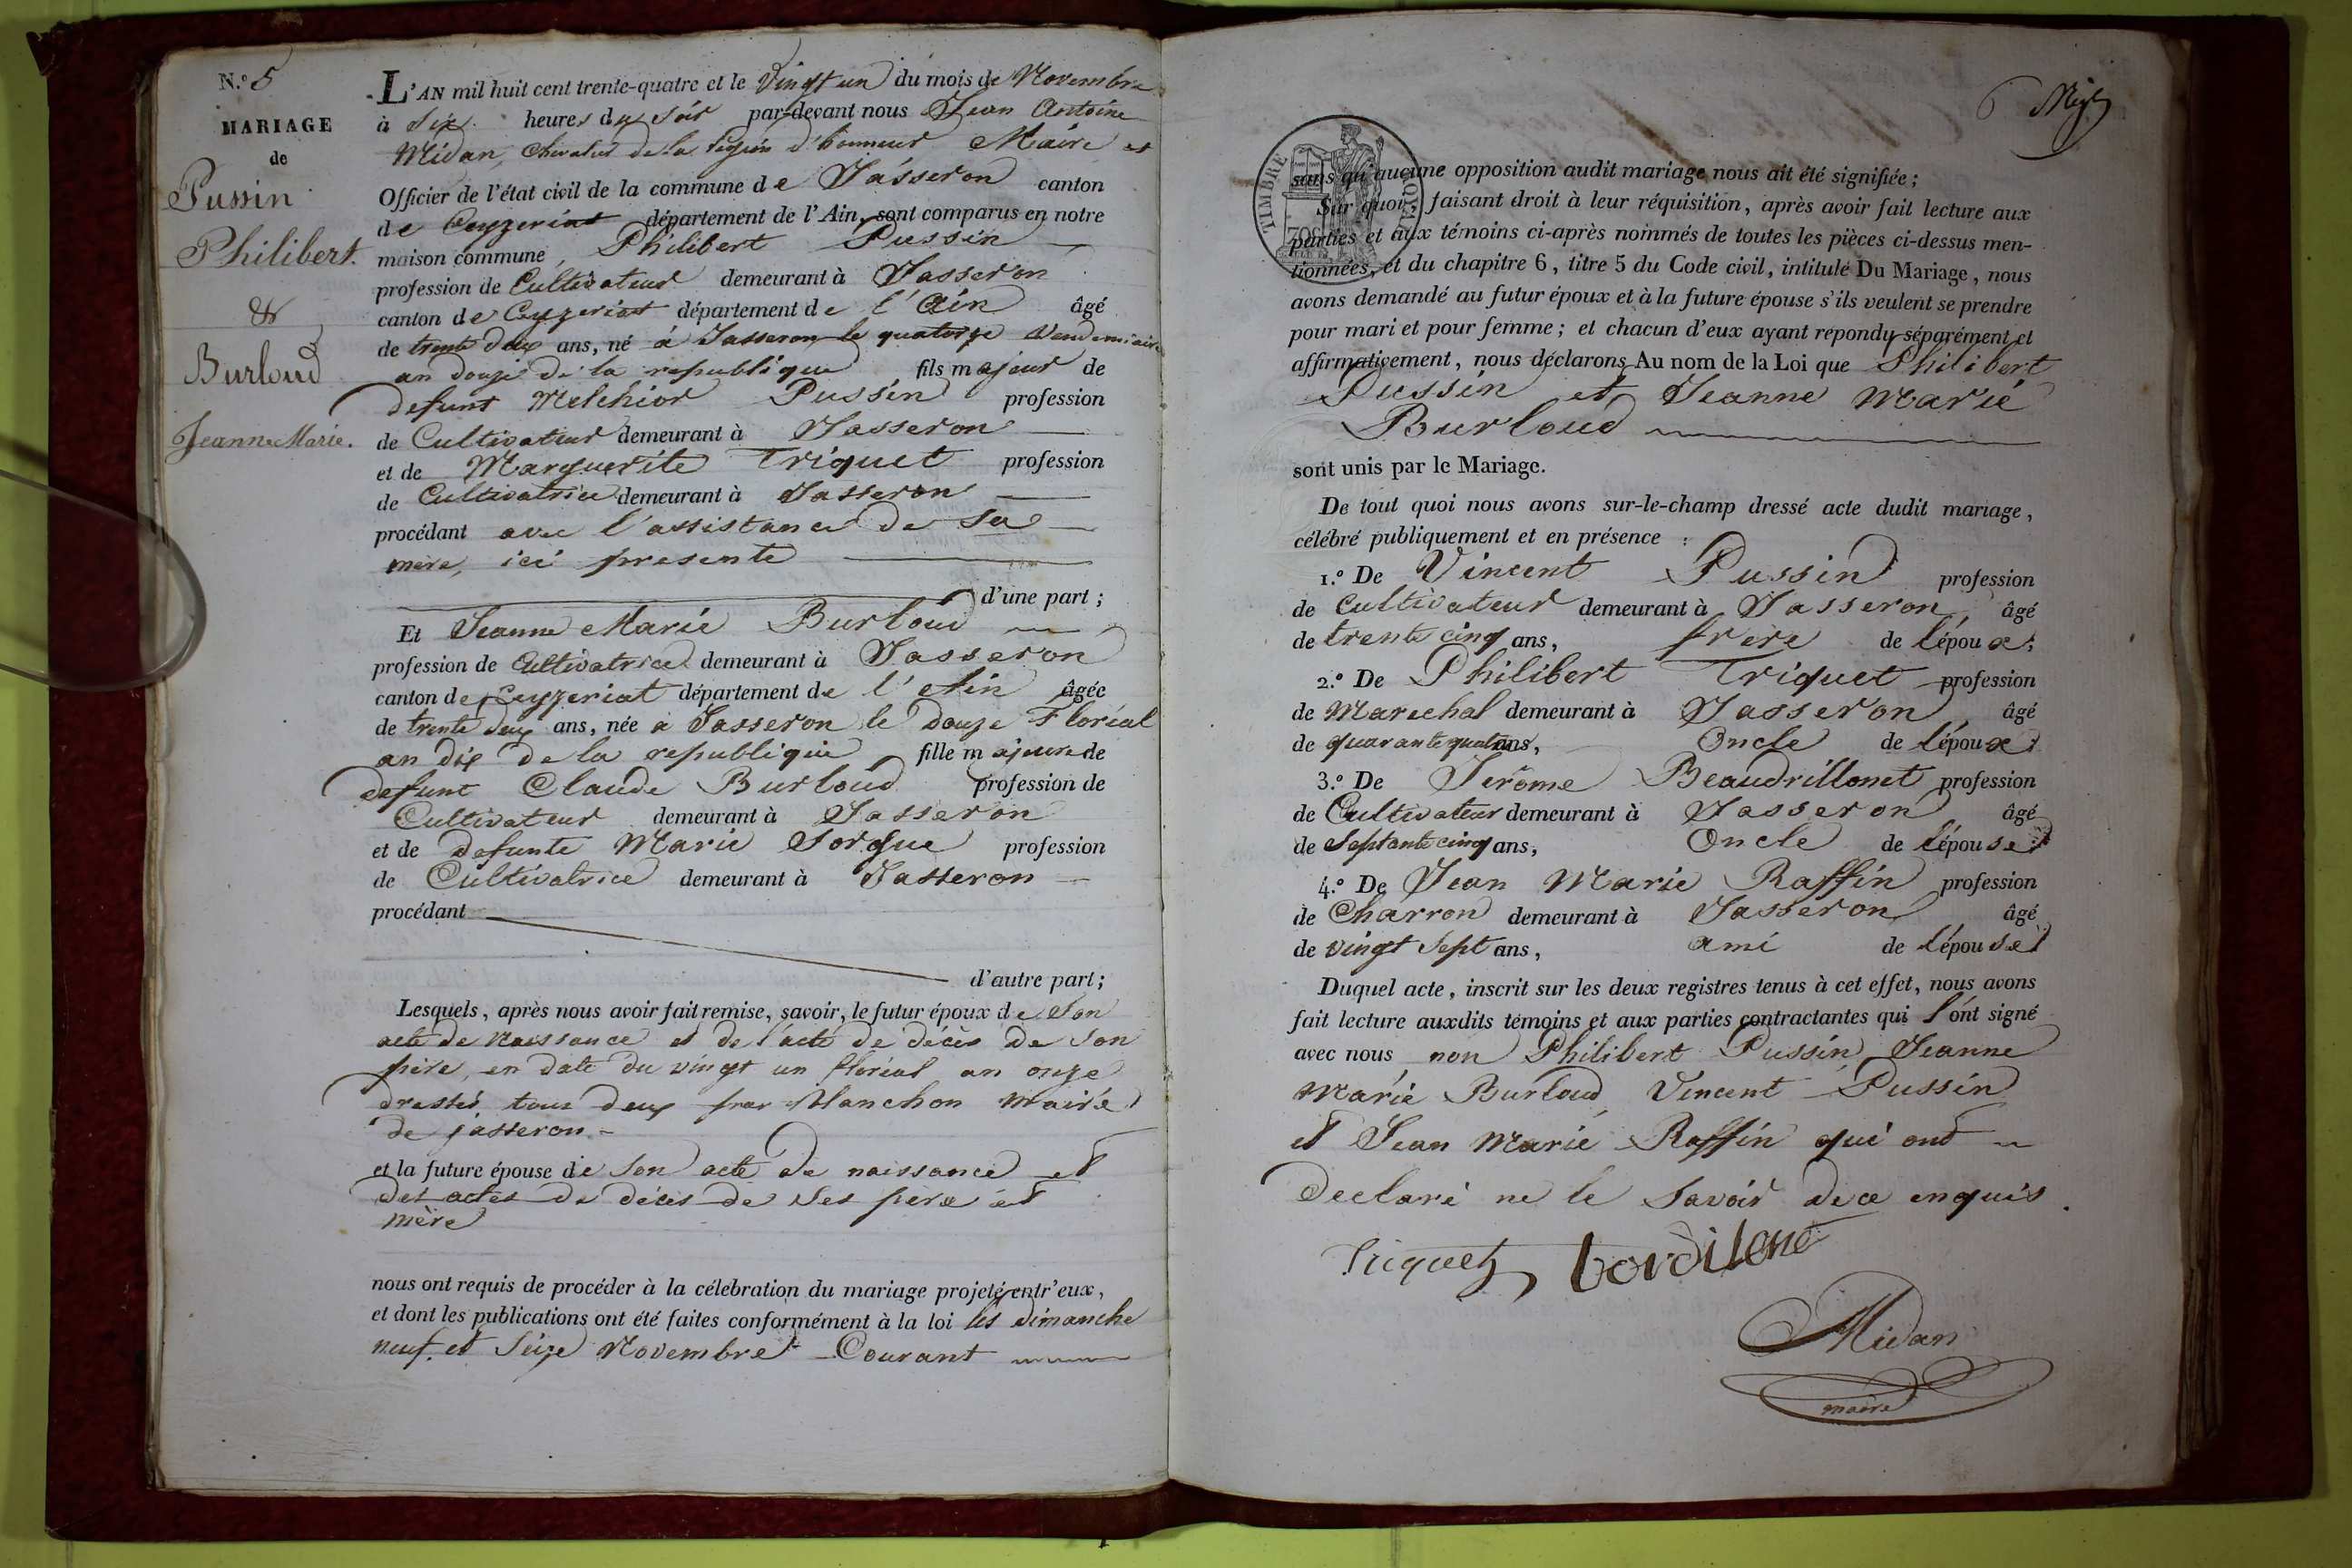 N.º 5
MARIAGE
de
Pussin
Philibert.
&
Burloud
Jeanne Marie.
L'AN mil huit cent trente-quatre et le vingt un du mois de Novembre
à six heures du soir par-devant nous Jean Antoine
Midan, chevalier de la légion d'honneur Maire et
Officier de l'état civil de la commune de Jasseron canton
de Ceyzeriat département de l'Ain, sont comparus en notre
maison commune, Philibert Pussin
profession de Cultivateur demeurant à Jasseron
canton de Ceyzeriat département de l'Ain âgé
de trente deux ans, né à Jasseron le quatorze vendemiaire
an douze de la republique fils majeur de
defunt Melchior Pussin profession
de Cultivateur demeurant à Jasseron
et de Marguerite Triquet profession
de Cultivatrice demeurant à Jasseron
procédant avec l'assistance de sa
mère, ici presente
d'une part ;
Et Jeanne Marie Burloud
profession de Cultivatrice demeurant à Jasseron
canton de Ceyzeriat département de l'Ain âgée
de trente deux ans, née à Jasseron le douze Floréal
an dix de la republique fille majeure de
defunt Claude Burloud profession de
Cultivateur demeurant à Jasseron
et de defunte Marie Sorgue profession
de Cultivatrice demeurant à Jasseron
procédant
d'autre part ;
Lesquels, après nous avoir fait remise, savoir, le futur époux de son
acte de Naissance et de l'acte de décès de son
père, en date du vingt un floréal an onze
dressés tous deux par Manchon Maire
de jasseron
et la future épouse de son acte de naissance et
des actes de décès de ses pere et
mère
nous ont requis de procéder à la célébration du mariage projeté entr'eux,
et dont les publications ont été faites conformément à la loi les dimanche
neuf et seize Novembre Courant
TIMBRE ROYAL
sans qu'aucune opposition audit mariage nous ait été signifiée ;
Sur quoi, faisant droit à leur réquisition, après avoir fait lecture aux
parties et aux témoins ci-après nommés de toutes les pièces ci-dessus men-
tionnées, et du chapitre 6, titre 5 du Code civil, intitulé Du Mariage, nous
avons demandé au futur époux et à la future épouse s'ils veulent se prendre
pour mari et pour femme ; et chacun d'eux ayant répondu séparément et
affirmativement, nous déclarons Au nom de la Loi que Philibert
Pussin et Jeanne Marie
Burloud
sont unis par le Mariage.
De tout quoi nous avons sur-le-champ dressé acte dudit mariage,
célébré publiquement et en présence :
1.º De Vincent Pussin profession
de Cultivateur demeurant à Jasseron, âgé
de trente cinq ans, frère de l'époux ;
2.º De Philibert Triquet profession
de Marechal demeurant à Jasseron, âgé
de quarante quatre ans, Oncle de l'époux ;
3.º De Jerome Beaudrillonet profession
de Cultivateur demeurant à Jasseron âgé
de Septante cinq ans, Oncle de l'épouse ;
4.º De Jean Marie Raffin profession
de Charron demeurant à Jasseron âgé
de vingt sept ans, ami de l'épouse
Duquel acte, inscrit sur les deux registres tenus à cet effet, nous avons
fait lecture auxdits témoins et aux parties contractantes qui l'ont signé
avec nous non Philibert Pussin, Jeanne
Marie Burloud Vincent Pussin
et Jean Marie Raffin qui ont
declaré ne le savoir de ce enquis.
Triquet
Midan
maire